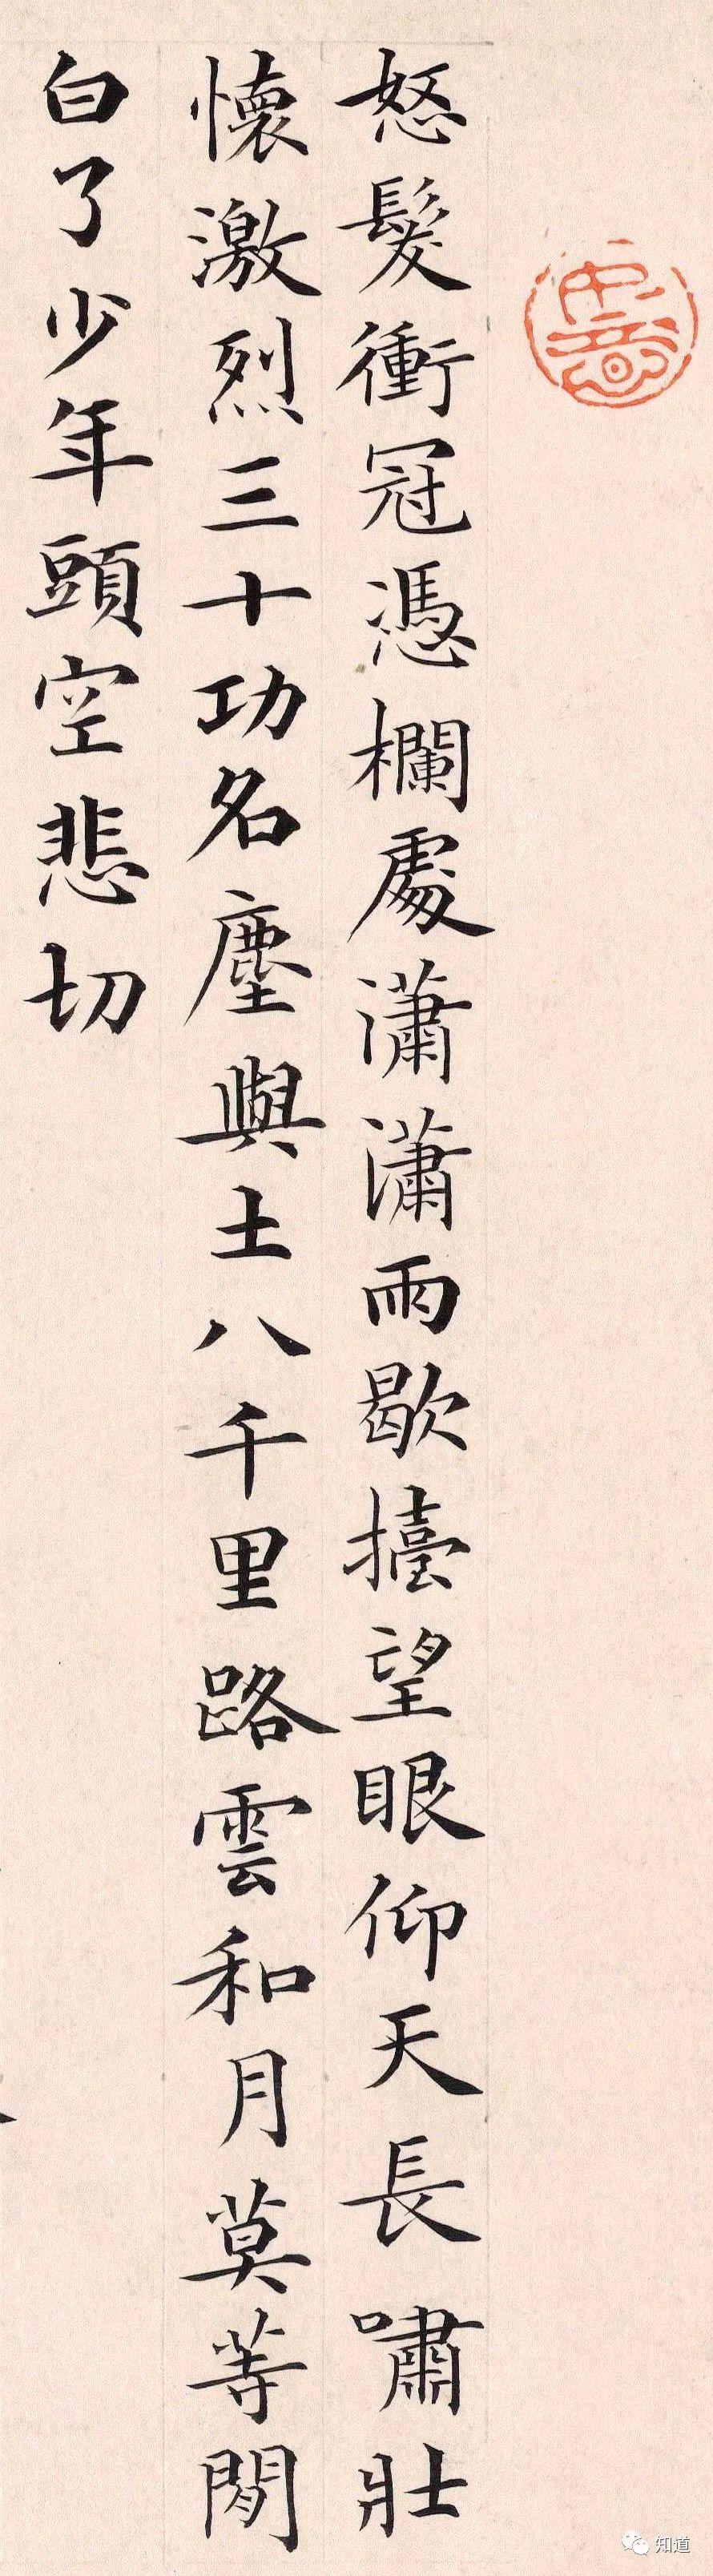 怒髮衝冠憑欄處瀟瀟雨歇擡望眼仰天長嘯壯
懷激烈三十功名塵與土八千里路雲和月莫等閒
白了少年頭空悲切
知道